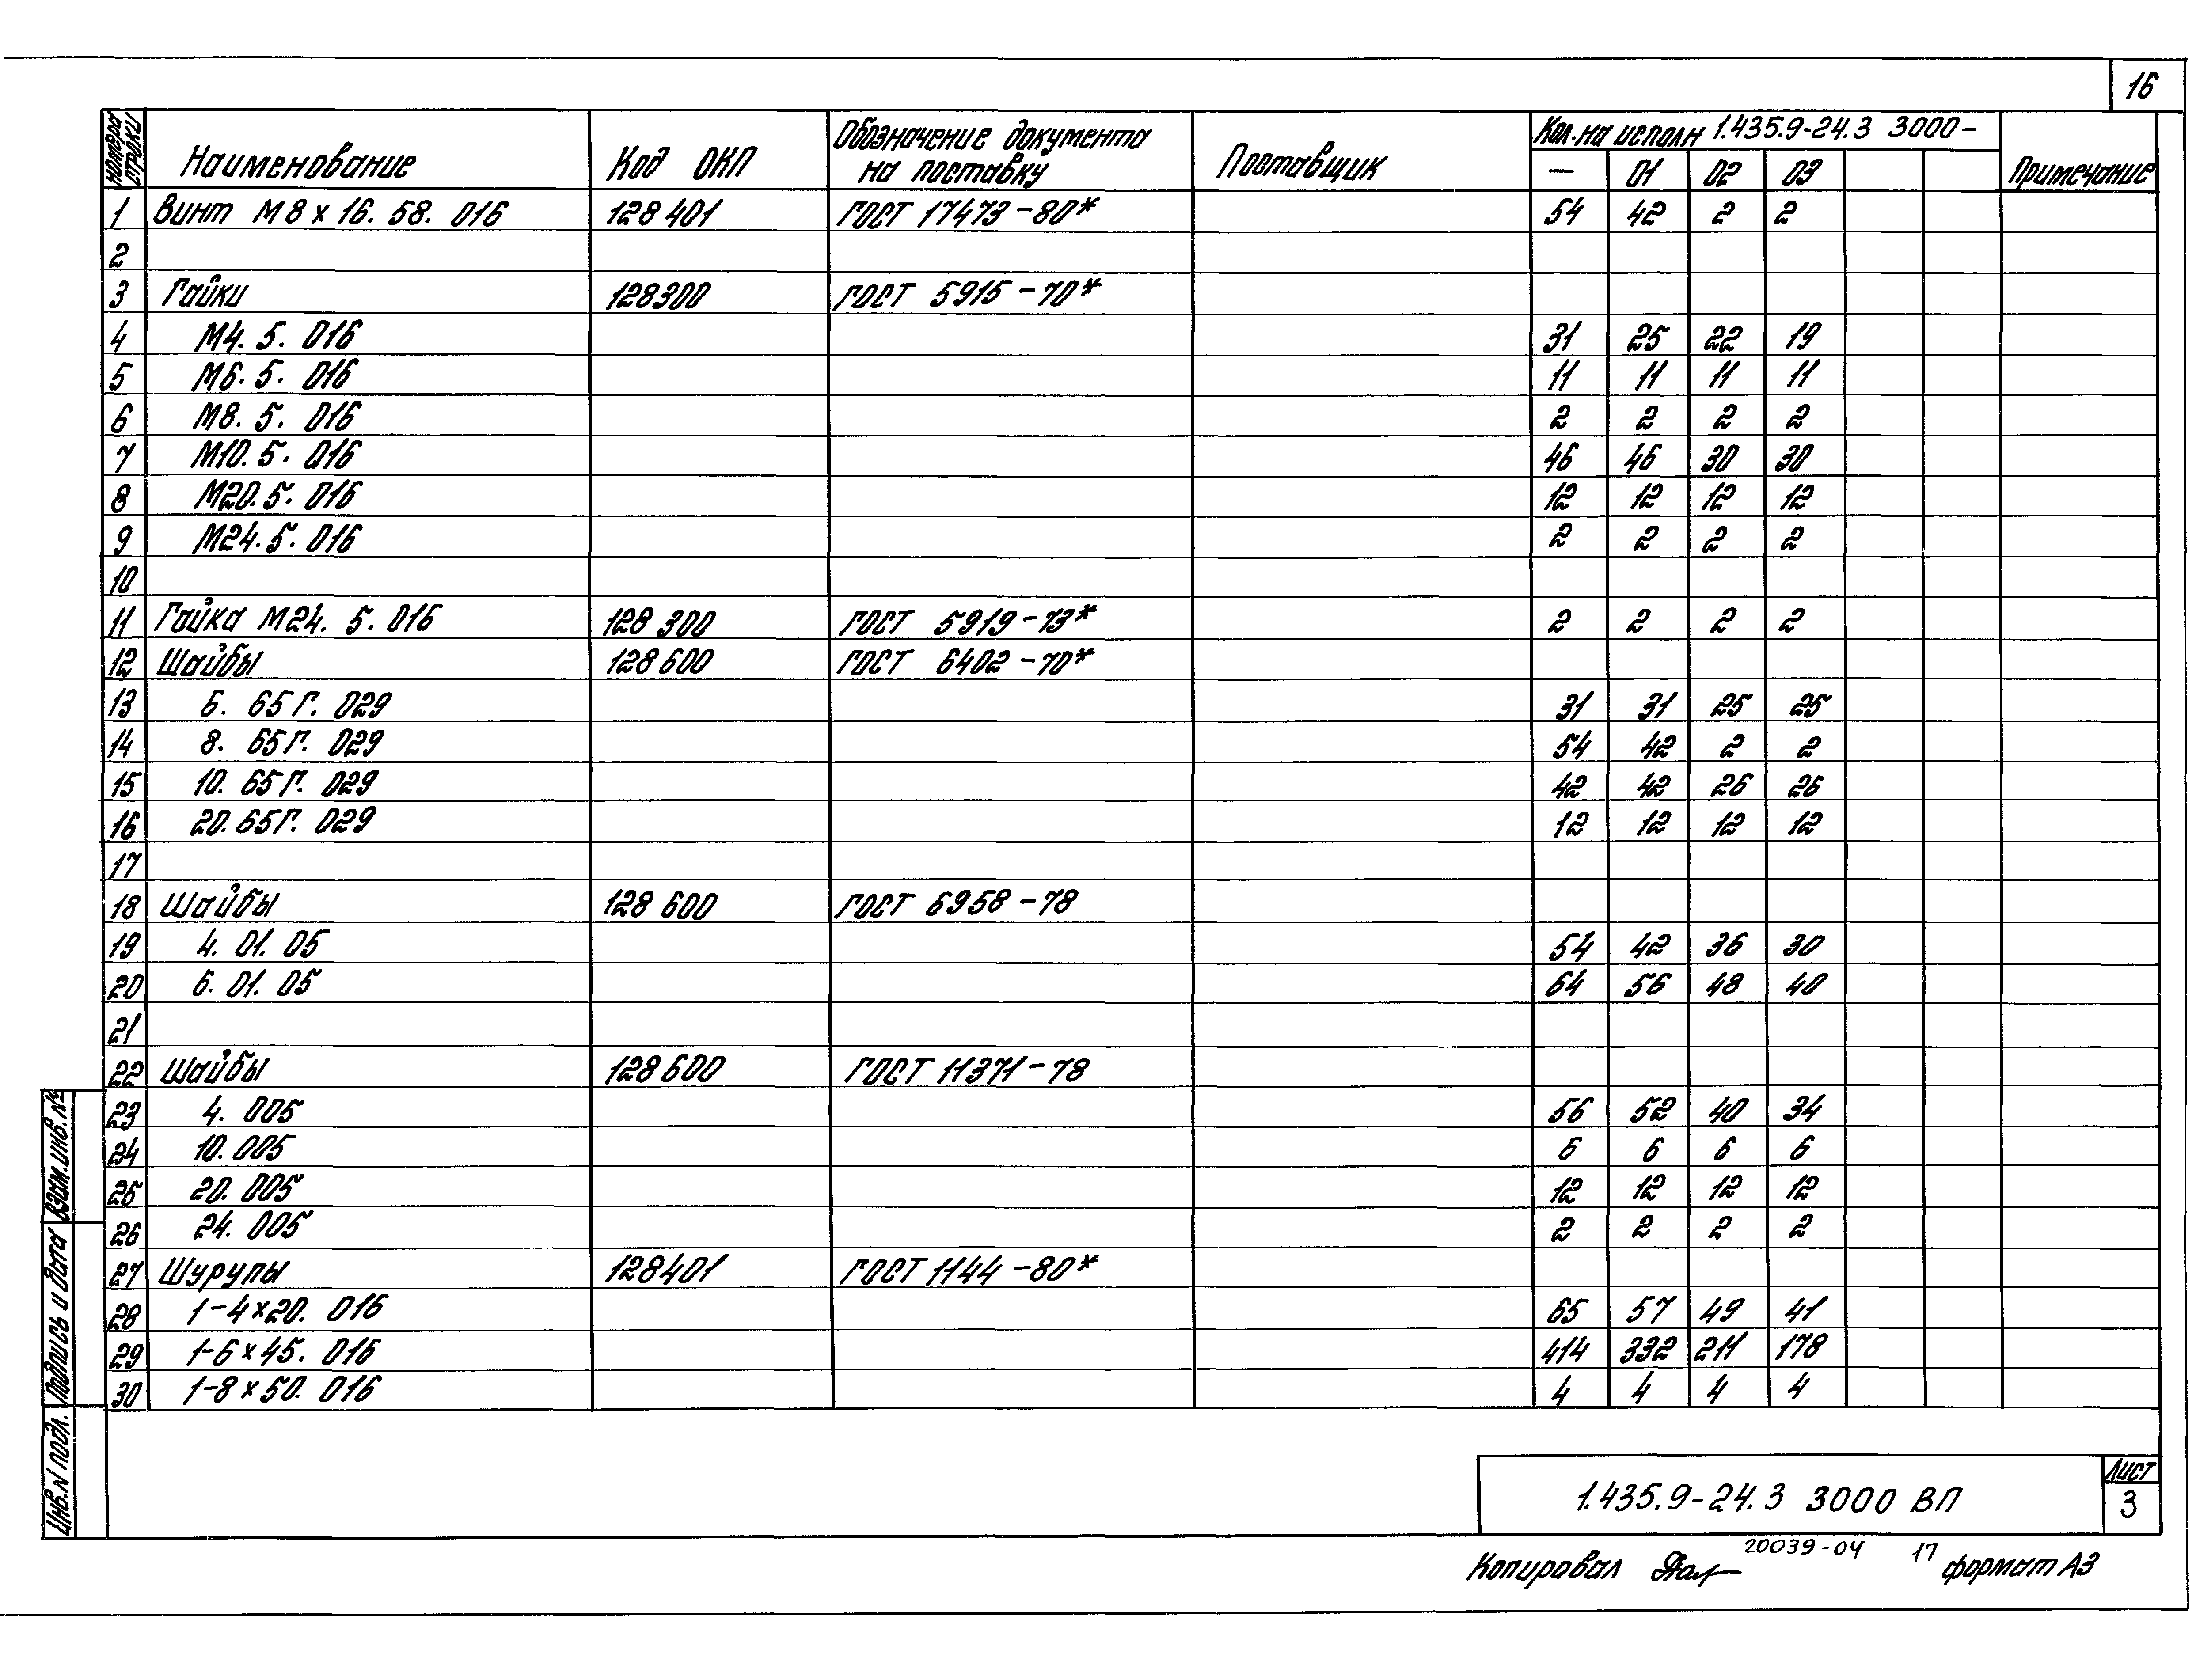 16
Номера строки
Наименование
Код ОКП
Обозначение документа
на поставку
Поставщик
Кол. на исполн 1.435.9-24.3 3000-
— 01 02 03
Примечание
1 Винт М8 х 16. 58. 016 128 401 ГОСТ 17473-80* 54 42 2 2
2
3 Гайки 128300 ГОСТ 5915-70*
4 М4. 5. 016 31 25 22 19
5 М6. 5. 016 11 11 11 11
6 М8. 5. 016 2 2 2 2
7 М10. 5. 016 46 46 30 30
8 М20. 5. 016 12 12 12 12
9 М24. 5. 016 2 2 2 2
10
11 Гайка М24. 5. 016 128 300 ГОСТ 5919-73* 2 2 2 2
12 Шайбы 128 600 ГОСТ 6402-70*
13 6. 65Г. 029 31 31 25 25
14 8. 65Г. 029 54 42 2 2
15 10. 65Г. 029 42 42 26 26
16 20. 65Г. 029 12 12 12 12
17
18 Шайбы 128 600 ГОСТ 6958-78
19 4. 01. 05 54 42 36 30
20 6. 01. 05 64 56 48 40
21
22 Шайбы 128 600 ГОСТ 11371-78
23 4. 005 56 52 40 34
24 10. 005 6 6 6 6
25 20. 005 12 12 12 12
26 24. 005 2 2 2 2
27 Шурупы 128401 ГОСТ 1144-80*
28 1-4х20. 016 65 57 49 41
29 1-6х45. 016 414 332 211 178
30 1-8х50. 016 4 4 4 4
Взам. инв. №
Подпись и дата
Инв. N подл.
1.435.9-24.3 3000 ВП
Лист
3
Копировал
20039-04 17
формат А3